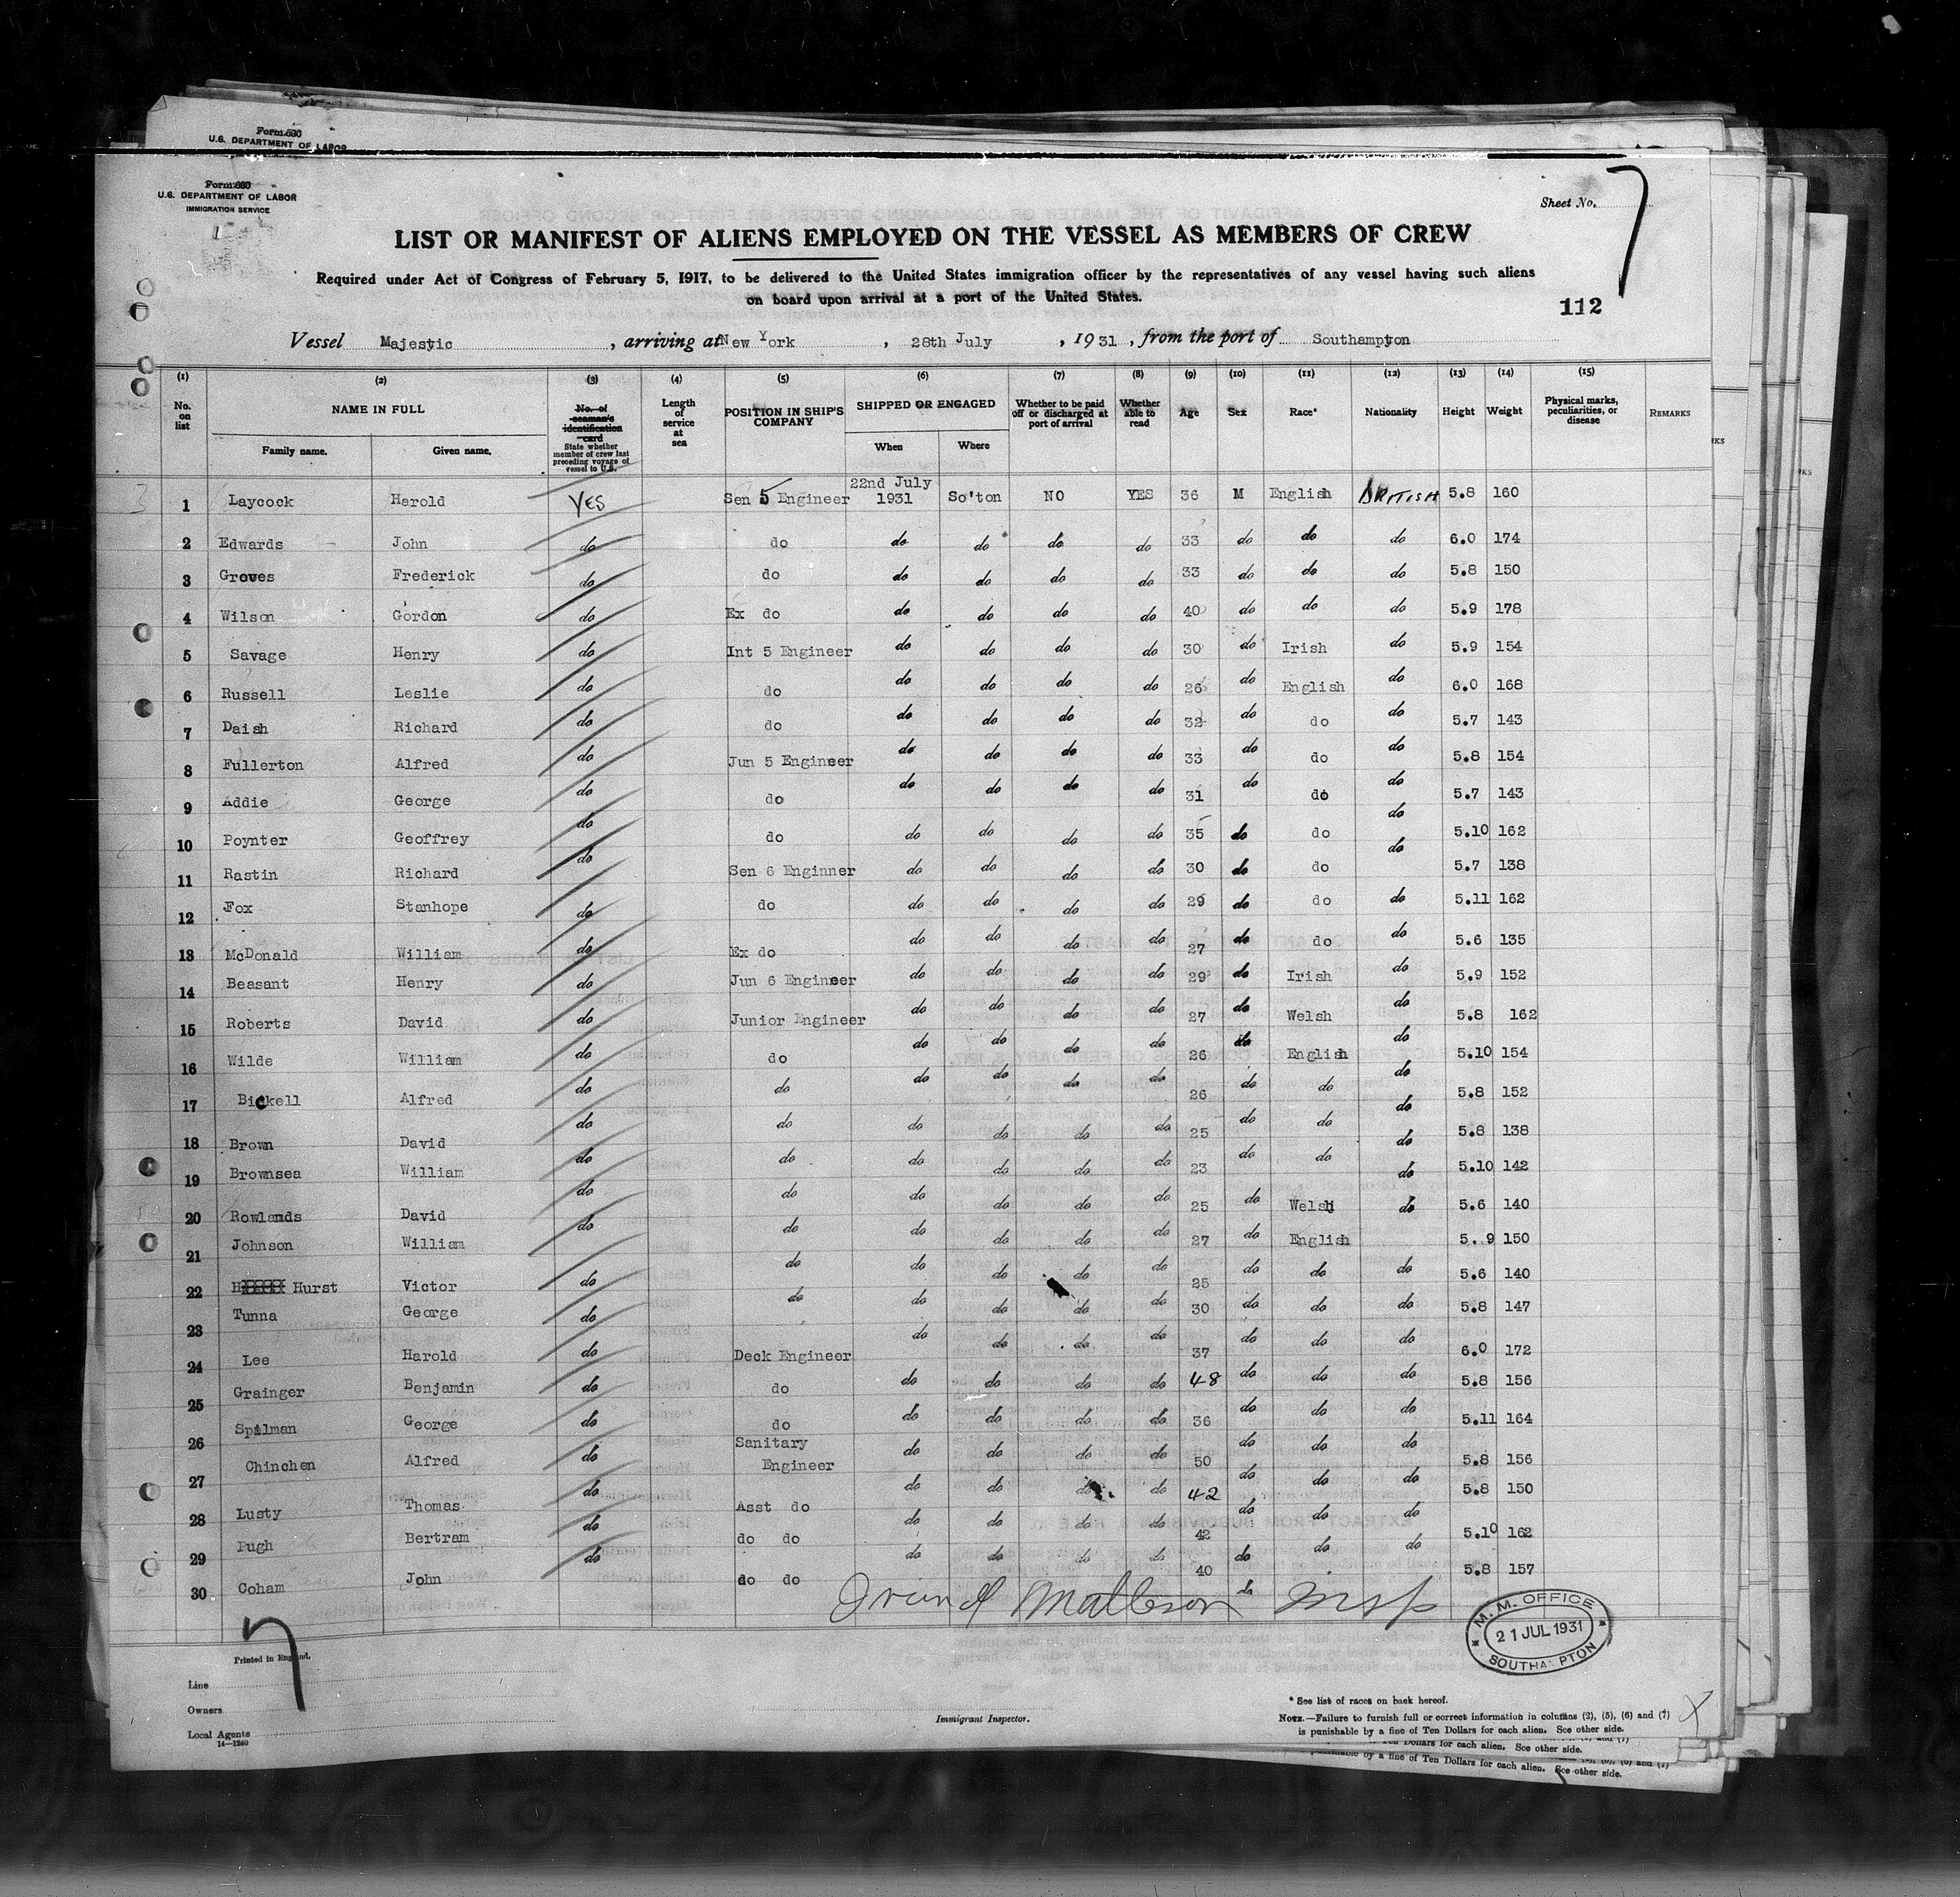 Form 690
U.S. DEPARTMENT OF LABOR
Form 680
U.S. DEPARTMENT OF LABOR
IMMIGRATION SERVICE
Sheet No. 7
LIST OR MANIFEST OF ALIENS EMPLOYED ON THE VESSEL AS MEMBERS OF CREW
Required under Act of Congress of February 5, 1917, to be delivered to the United States immigration officer by the representatives of any vessel having such aliens
on board upon arrival at a port of the United States.
112
Vessel Majestic , arriving at New York , 28th July , 1931 , from the port of Southampton
(1) (2) (3) (4) (5) (6) (7) (8) (9) (10) (11) (12) (13) (14) (15)
No. on list NAME IN FULL Family name. Given name. No. of seaman's identification card State whether member of crew last preceding voyage of vessel to U.S. Length of service at sea POSITION IN SHIP'S COMPANY SHIPPED OR ENGAGED When Where Whether to be paid off or discharged at port of arrival Whether able to read Age Sex Race* Nationality Height Weight Physical marks, peculiarities, or disease REMARKS
1 Laycock Harold YES Sen 5 Engineer 22nd July 1931 So'ton NO YES 36 M English BRITISH 5.8 160
2 Edwards John do do do do do do 33 do do do 6.0 174
3 Groves Frederick do do do do do do 33 do do do 5.8 150
4 Wilson Gordon do Ex do do do do do 40 do do do 5.9 178
5 Savage Henry do Int 5 Engineer do do do do 30 do Irish do 5.9 154
6 Russell Leslie do do do do do do 26 do English do 6.0 168
7 Daish Richard do do do do do do 32 do do do 5.7 143
8 Fullerton Alfred do Jun 5 Engineer do do do do 33 do do do 5.8 154
9 Addie George do do do do do do 31 do do do 5.7 143
10 Poynter Geoffrey do do do do do do 35 do do do 5.10 162
11 Rastin Richard do Sen 6 Enginner do do do do 30 do do do 5.7 138
12 Fox Stanhope do do do do do do 29 do do do 5.11 162
13 McDonald William do Ex do do do do do 27 do do do 5.6 135
14 Beasant Henry do Jun 6 Engineer do do do do 29 do Irish do 5.9 152
15 Roberts David do Junior Engineer do do do do 27 do Welsh do 5.8 162
16 Wilde William do do do do do do 26 do English do 5.10 154
17 Bickell Alfred do do do do do do 26 do do do 5.8 152
18 Brown David do do do do do do 25 do do do 5.8 138
19 Brownsea William do do do do do do 23 do do do 5.10 142
20 Rowlands David do do do do do do 25 do Welsh do 5.6 140
21 Johnson William do do do do do do 27 do English 5.9 150
22 Hurst Victor do do do do do do 25 do do do 5.6 140
23 Tunna George do do do do do do 30 do do do 5.8 147
24 Lee Harold do Deck Engineer do do do do 37 do do do 6.0 172
25 Grainger Benjamin do do do do do do 48 do do do 5.8 156
26 Spilman George do do do do do do 36 do do do 5.11 164
27 Chinchen Alfred do Sanitary Engineer do do do do 50 do do do 5.8 156
28 Lusty Thomas do Asst do do do do do 42 do do do 5.8 150
29 Pugh Bertram do do do do do do do 42 do do do 5.10 162
30 Coham John do do do do do do do 40 do do do 5.8 157
do
Matteson Insp
M. M. OFFICE
21 JUL 1931
SOUTHAMPTON
7
Printed in England.
Line
Owners
Local Agents
14—1240
Immigrant Inspector.
* See list of races on back hereof.
NOTE.—Failure to furnish full or correct information in columns (2), (5), (6) and (7)
is punishable by a fine of Ten Dollars for each alien. See other side.
Ten Dollars for each alien. See other side.
punishable by a fine of Ten Dollars for each alien. See other side.